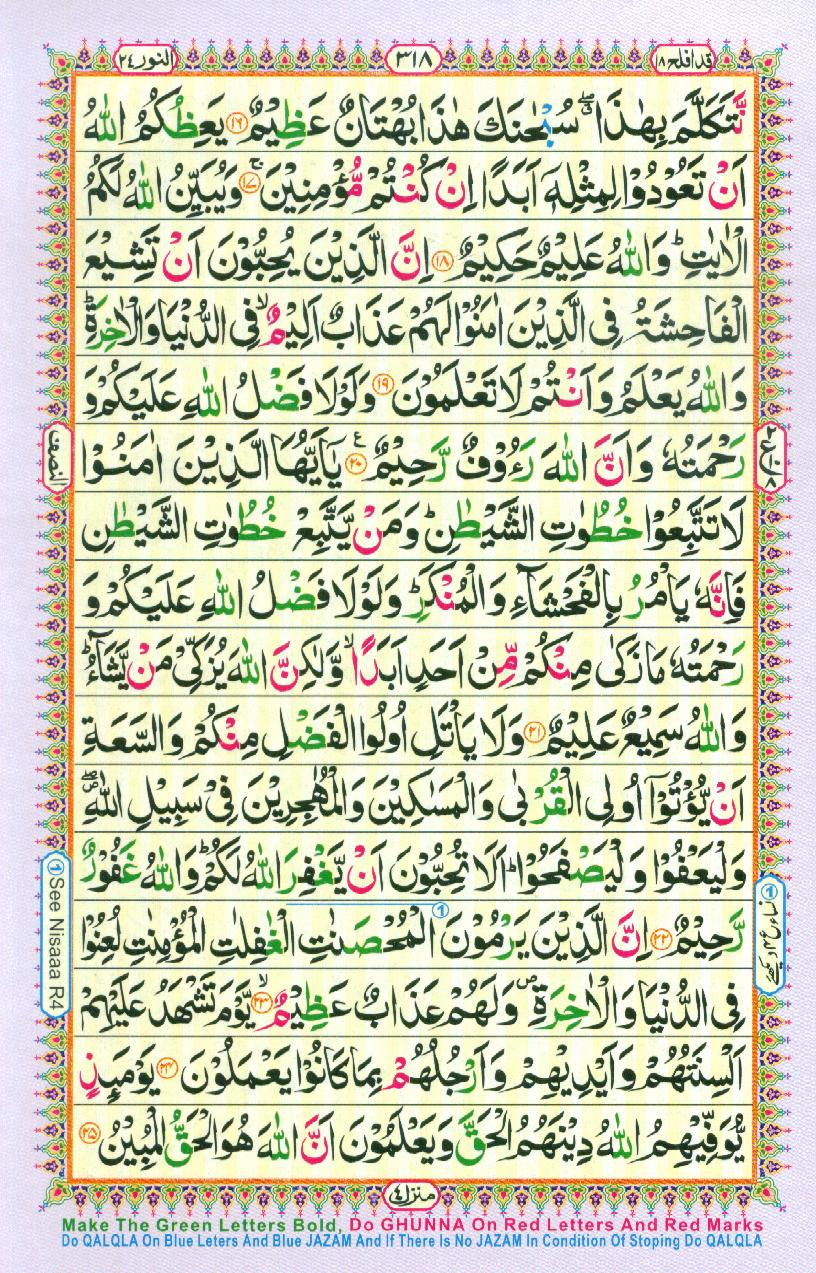 قد افلح ١٨
٣١٨
النور ٢٤
نَّتَكَلَّمَ بِهٰذَا ۖ سُبْحٰنَكَ هٰذَا بُهْتَانٌ عَظِيْمٌ ١٦ يَعِظُكُمُ اللّٰهُ
اَنْ تَعُوْدُوْا لِمِثْلِهٖۤ اَبَدًا اِنْ كُنْتُمْ مُّؤْمِنِيْنَ ١٧ وَيُبَيِّنُ اللّٰهُ لَكُمُ
الْاٰيٰتِ ؕ وَاللّٰهُ عَلِيْمٌ حَكِيْمٌ ١٨ اِنَّ الَّذِيْنَ يُحِبُّوْنَ اَنْ تَشِيْعَ
الْفَاحِشَةُ فِى الَّذِيْنَ اٰمَنُوْا لَهُمْ عَذَابٌ اَلِيْمٌ ۙ فِى الدُّنْيَا وَالْاٰخِرَةِ ؕ
وَاللّٰهُ يَعْلَمُ وَاَنْتُمْ لَا تَعْلَمُوْنَ ١٩ وَلَوْلَا فَضْلُ اللّٰهِ عَلَيْكُمْ وَ
رَحْمَتُهٗ وَاَنَّ اللّٰهَ رَءُوْفٌ رَّحِيْمٌ ٢٠ ع يٰۤاَيُّهَا الَّذِيْنَ اٰمَنُوْا
لَا تَتَّبِعُوْا خُطُوٰتِ الشَّيْطٰنِ ؕ وَمَنْ يَّتَّبِعْ خُطُوٰتِ الشَّيْطٰنِ
فَاِنَّهٗ يَاْمُرُ بِالْفَحْشَآءِ وَالْمُنْكَرِ ؕ وَلَوْلَا فَضْلُ اللّٰهِ عَلَيْكُمْ وَ
رَحْمَتُهٗ مَا زَكٰى مِنْكُمْ مِّنْ اَحَدٍ اَبَدًا ۙ وَّلٰكِنَّ اللّٰهَ يُزَكِّىْ مَنْ يَّشَآءُ ؕ
وَاللّٰهُ سَمِيْعٌ عَلِيْمٌ ٢١ وَلَا يَاْتَلِ اُولُوا الْفَضْلِ مِنْكُمْ وَالسَّعَةِ
اَنْ يُّؤْتُوْۤا اُولِى الْقُرْبٰى وَالْمَسٰكِيْنَ وَالْمُهٰجِرِيْنَ فِىْ سَبِيْلِ اللّٰهِ ۖ
وَلْيَعْفُوْا وَلْيَصْفَحُوْا ؕ اَلَا تُحِبُّوْنَ اَنْ يَّغْفِرَ اللّٰهُ لَكُمْ ؕ وَاللّٰهُ غَفُوْرٌ
رَّحِيْمٌ ٢٢ اِنَّ الَّذِيْنَ يَرْمُوْنَ الْمُحْصَنٰتِ الْغٰفِلٰتِ الْمُؤْمِنٰتِ لُعِنُوْا
فِى الدُّنْيَا وَالْاٰخِرَةِ ۪ وَلَهُمْ عَذَابٌ عَظِيْمٌ ۙ ٢٣ يَّوْمَ تَشْهَدُ عَلَيْهِمْ
اَلْسِنَتُهُمْ وَاَيْدِيْهِمْ وَاَرْجُلُهُمْ بِمَا كَانُوْا يَعْمَلُوْنَ ٢٤ يَوْمَئِذٍ
يُّوَفِّيْهِمُ اللّٰهُ دِيْنَهُمُ الْحَقَّ وَيَعْلَمُوْنَ اَنَّ اللّٰهَ هُوَ الْحَقُّ الْمُبِيْنُ ٢٥
النصف
1 See Nisaaa R4
منزل ٤
Make The Green Letters Bold, Do GHUNNA On Red Letters And Red Marks
Do QALQLA On Blue Leters And Blue JAZAM And If There Is No JAZAM In Condition Of Stoping Do QALQLA